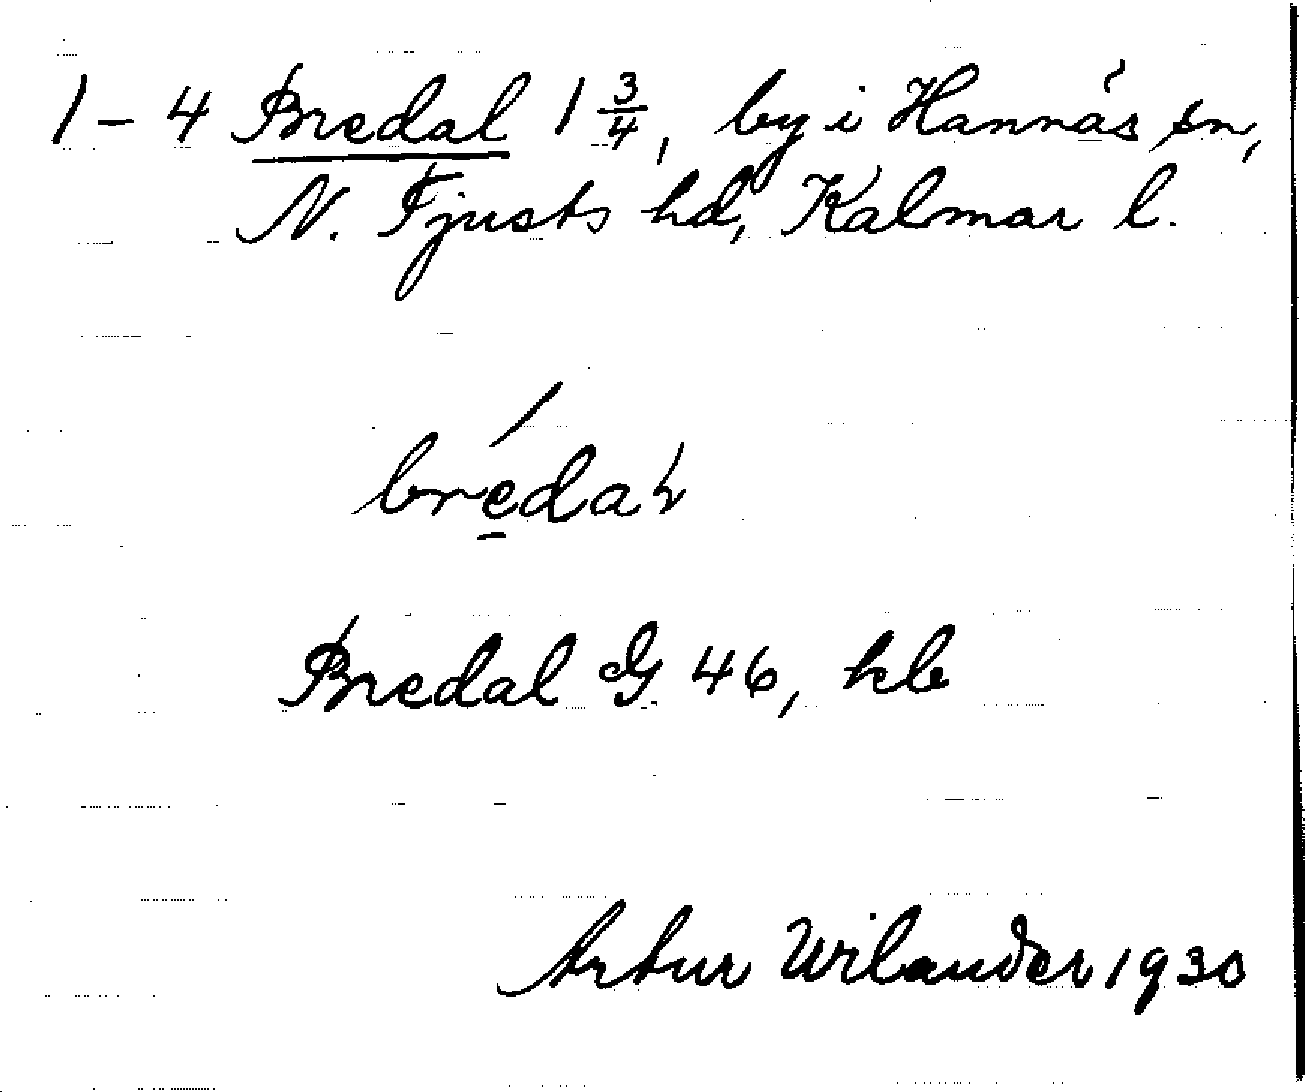 1-4 Bredal 1 3/4, by i Hannäs sn,
N. Tjusts hd, Kalmar l.
bre̱daɫ
Bredal G 46, kb
Artur Wilander 1930